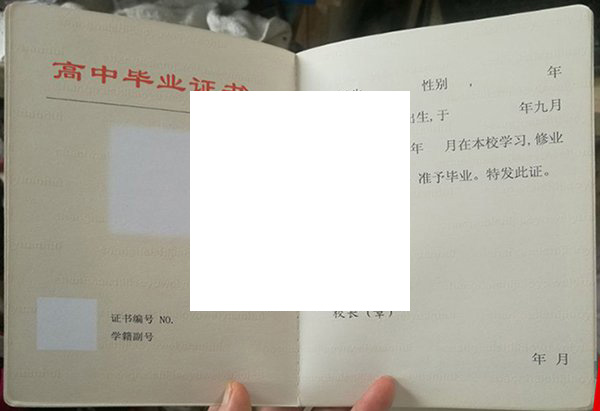 高中毕业证书
证书编号 NO.
学籍副号
性别 , 年
出生,于 年九月
年 月在本校学习,修业
准予毕业。特发此证。
校长（章）
年 月